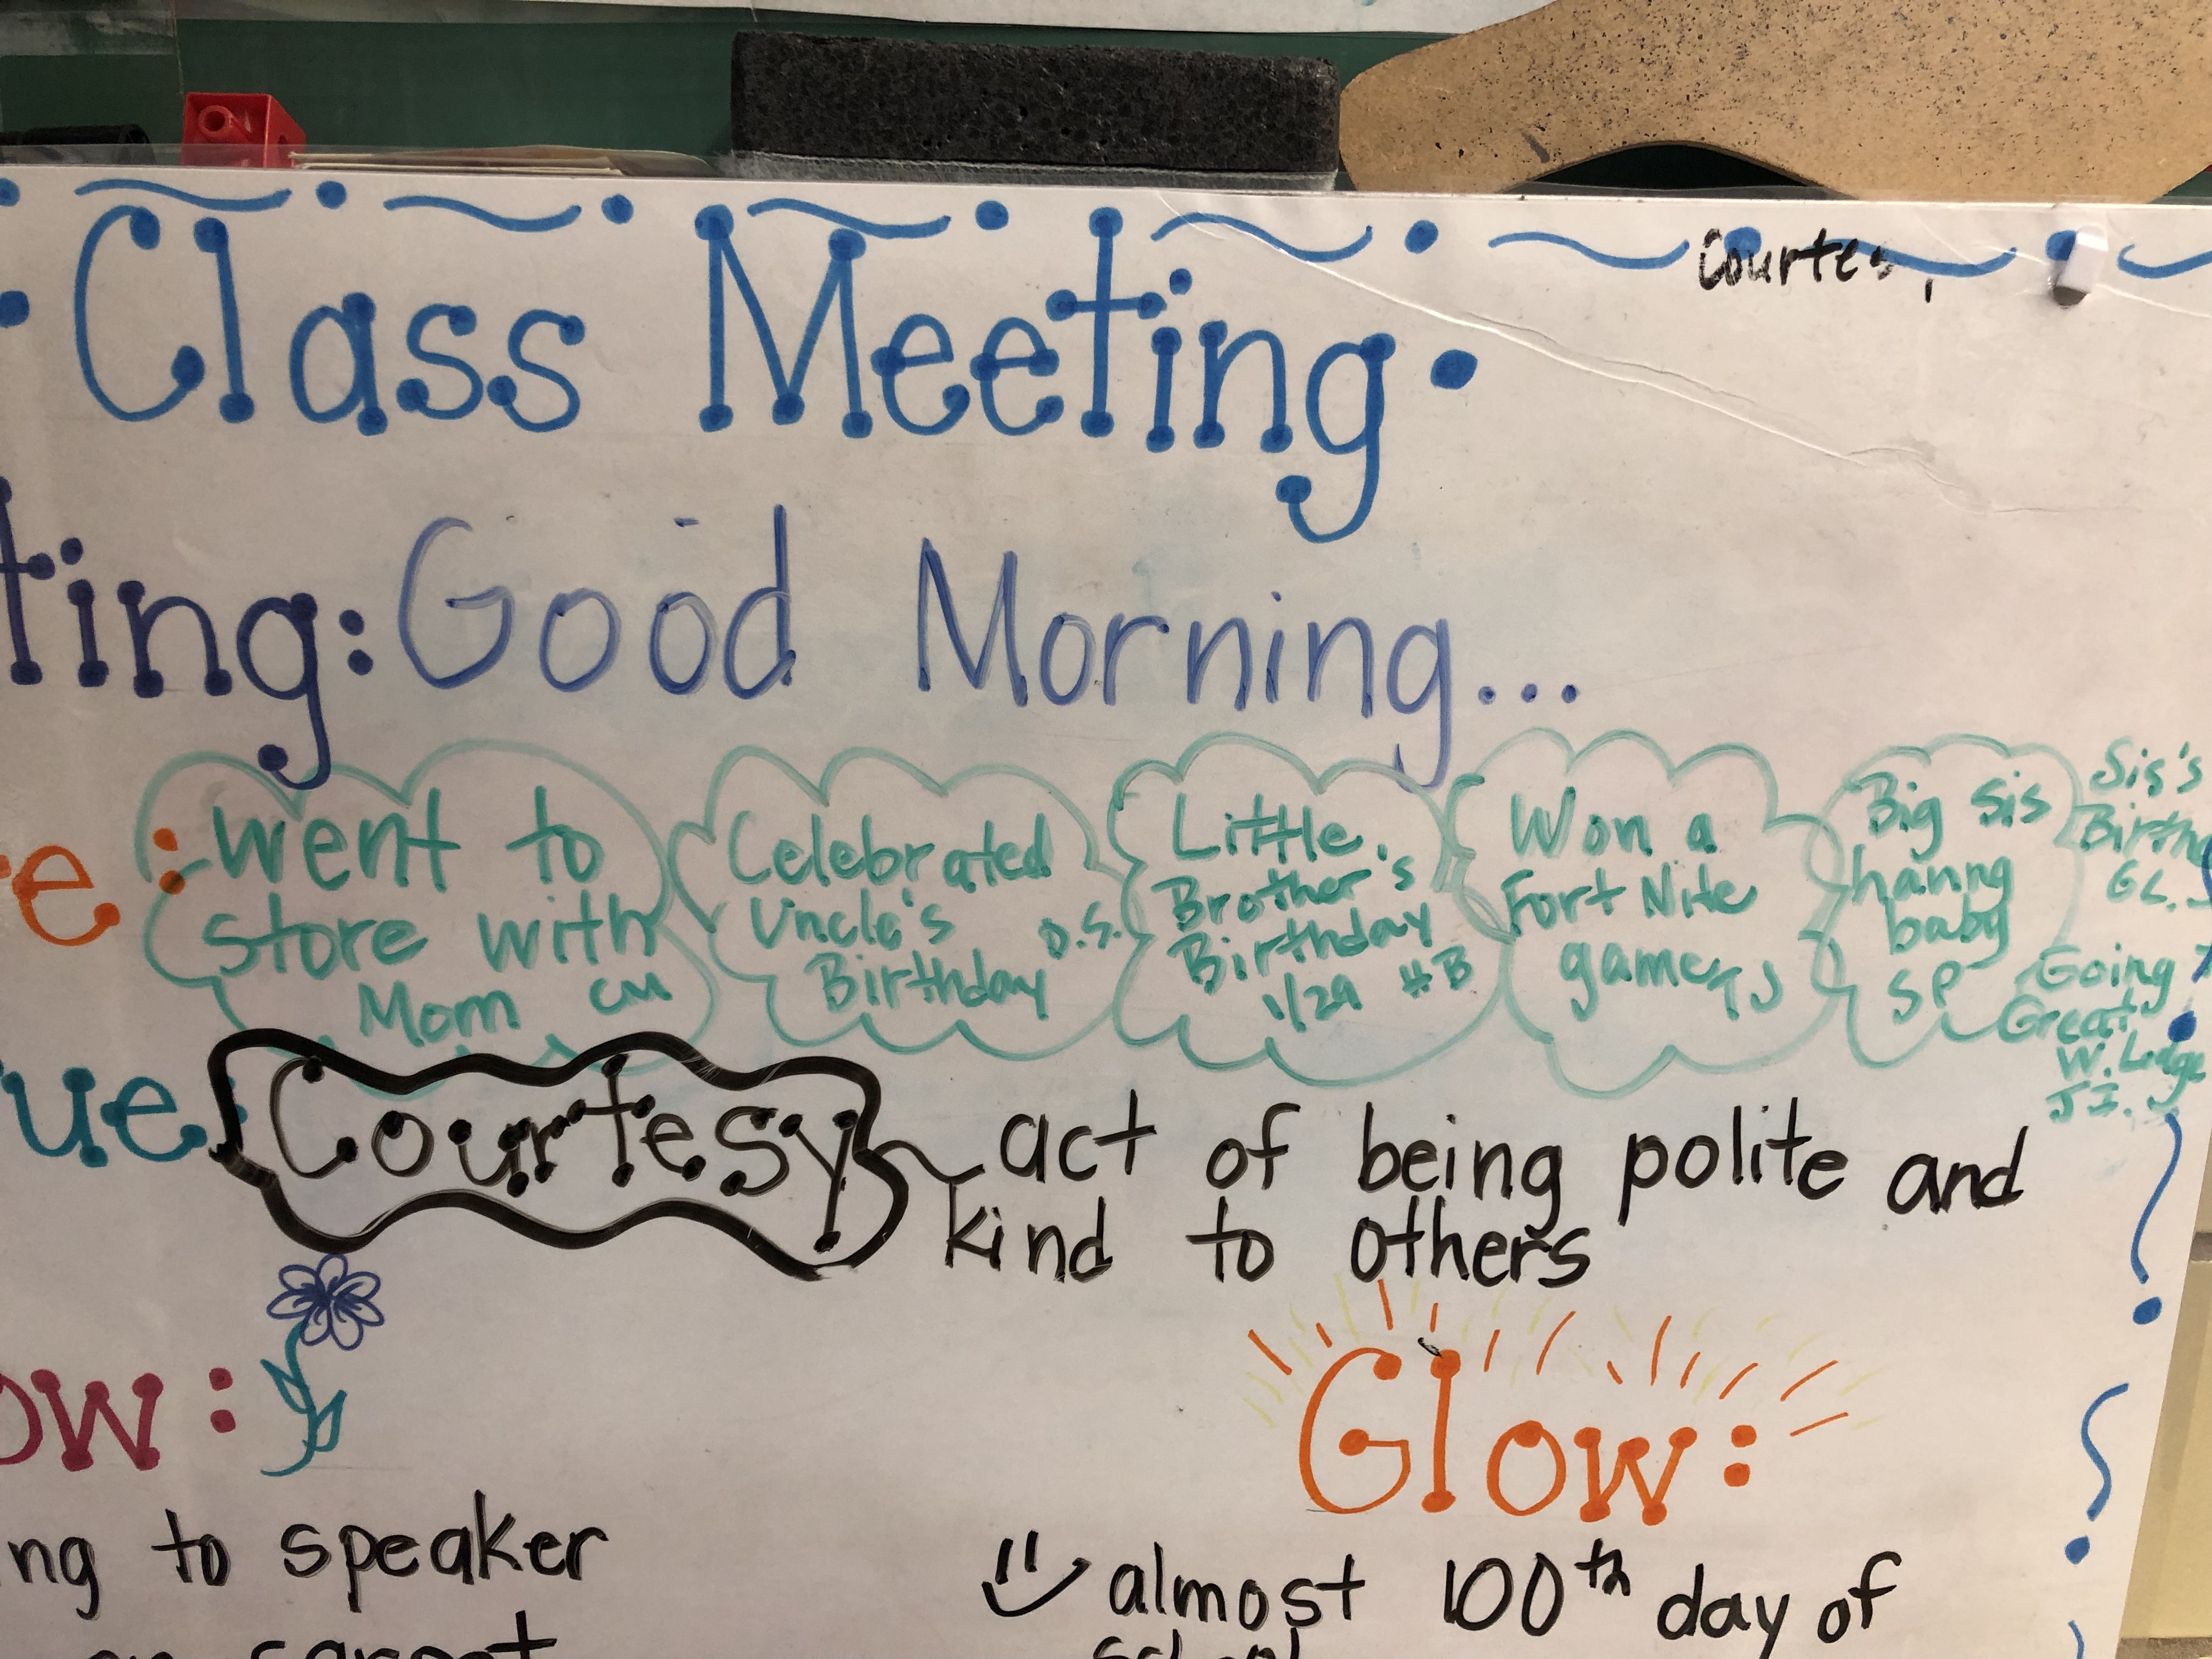 Courtes
Class Meeting
ting: Good Morning...
e: went to
store with
Mom CM
Celebrated
Uncle's
Birthday D.S.
Little
Brother's
Birthday
1/29 #B
Won a
Fort Nite
game
Big sis
having
baby
SP
Sis's
Birth
GL.
Going
Great
W. Lodge
JI.
ue: Courtesy act of being polite and
kind to others
ow:
Glow:
ng to speaker
on carpet
almost 100th day of
school